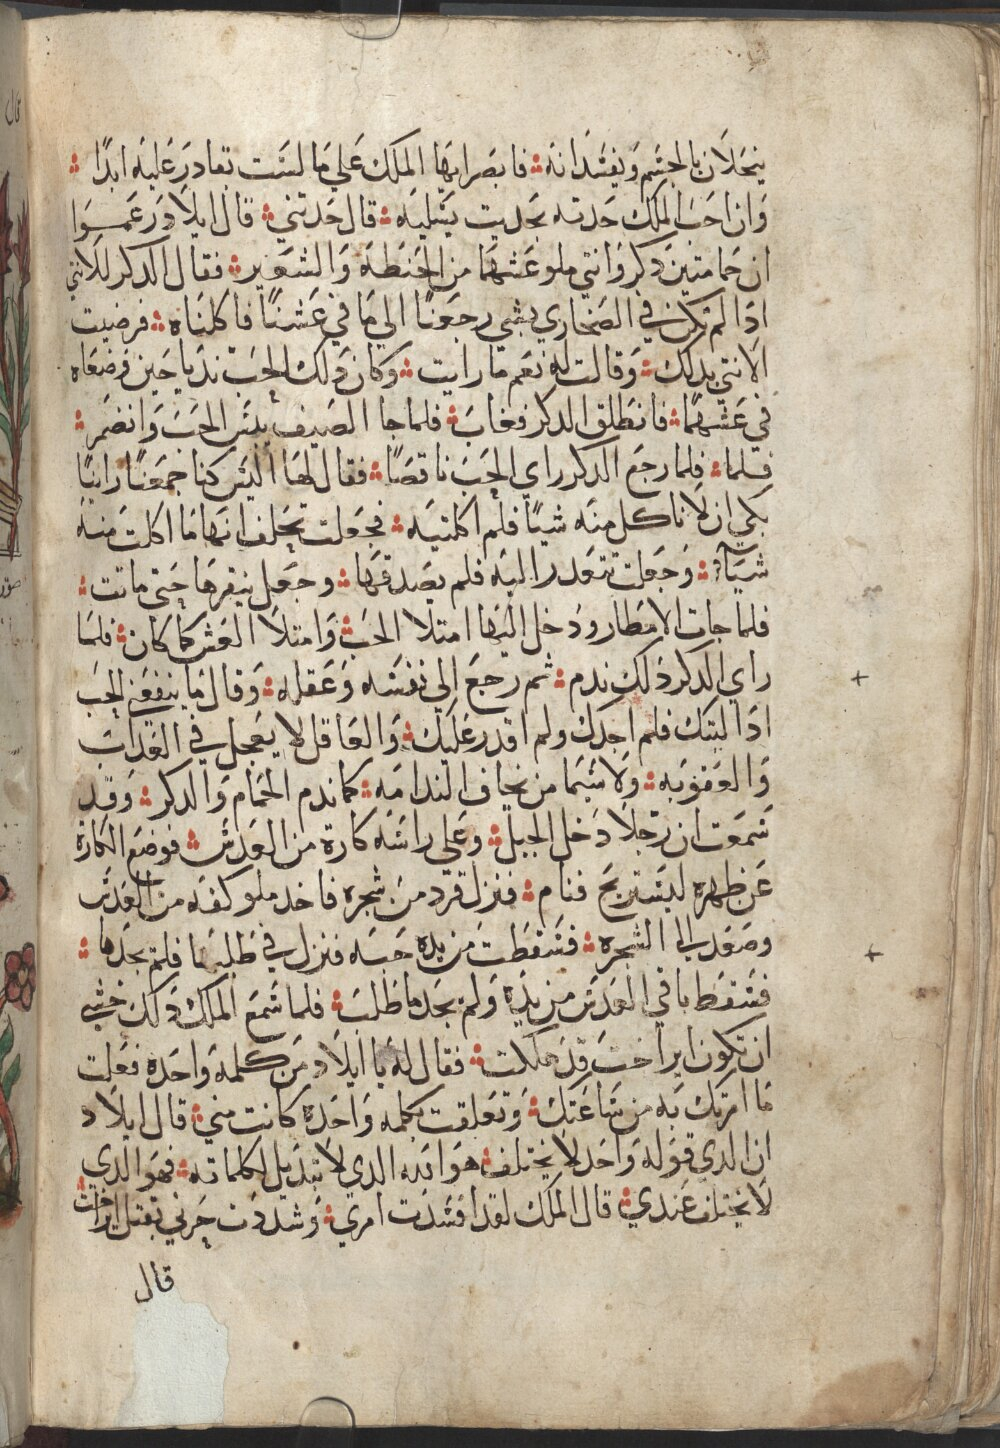 ينحلان بالجسم ويفسدانه فابصر ايها الملك علي ما لست تقادر عليه ابدًا
وان احب الملك حدثه بحديث يسليه قال حدثني قال ايلاد زعموا
ان حمامتين دكر وانتي ملو عشهما من الحنطه والشعير فقال الدكر للانتي
ادا لم تكن في الصحاري بشي رجعنا الي ما في عشنا فاكلناه فرضيت
الانتي بدلك وقالت له نعم ما رايت وكان دلك الحب نديا حين وضعاه
في عشهما فانطلق الدكر فغاب فلما جا الصيف يبس الحب وانضمر
فلما فلما رجع الدكر راي الحب ناقصًا فقال لها اليس كنا جمعنا راينا
بكي ان لا ناكل منه شيا فلم اكلتيه فجعلت تحلف انها ما اكلت منه
شيا وجعلت تتعدر اليه فلم يصدقها وجعل ينقرها حتي ماتت
فلما جات الامطار ودخل اليها امتلا الحب وامتلا العش كما كان فلما
راي الدكر دلك ندم ثم رجع الي نفسه وعقله وقال ما ينفعني الحب
ادا ليتك فلم اجدك ولم اقدر عليك والعاقل لا يعجل في العداب
والعقوبه ولا سيما من يخاف الندامه كما ندم الحمام والدكر وقد
سمعت ان رجلا دخل الجبل وعلي راسه كارة من العدس فوضع الكارة
عن ظهره ليستريح فنام فنزل قرد من شجره فاخد ملو كفه من العدس
وصعد الي الشجره فسقطت من يده حبه فنزل في طلبها فلم يجدها
فسقط باقي العدس من يده ولم يجد ما طلب فلما سمع الملك دلك خشي
ان تكون ايراخت قد هلكت فقال له يا ايلاد من كلمه واحده فعلت
ما امرتك به من ساعتك وتعلقت بكلمه واحدة كانت مني قال ايلاد
ان الدي قوله واحد لا يختلف هو الله الدي لا تبديل لكلماته فهو الدي
لا يختلف عندي قال الملك لقد افسدت امري وشددت حزني بقتل ايراخت
قال